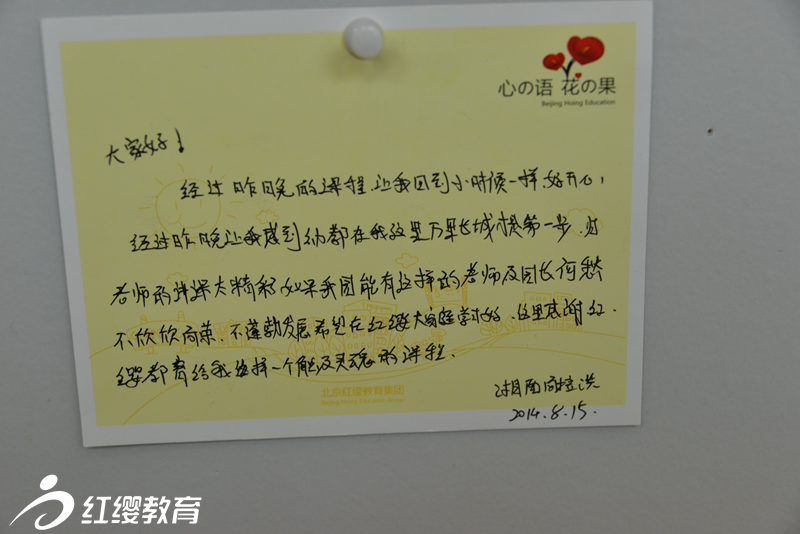 心の语 花の果
Beijing Hoing Education
大家好！
经过昨日晚的课程，让我回到小时候一样，好开心，
经过昨晚让我感到幼都在我这里万里长城才是第一步，
老师的讲课太精彩，如果我园能有这样的老师及园长何愁
不欣欣向荣，不蓬勃发展，希望在红缨大家庭学好，这里感谢红
缨教育给我选择一个触及灵魂的课程。
北京红缨教育集团
Beijing Hoing Education Group
湖南
2014.8.15.
红缨教育